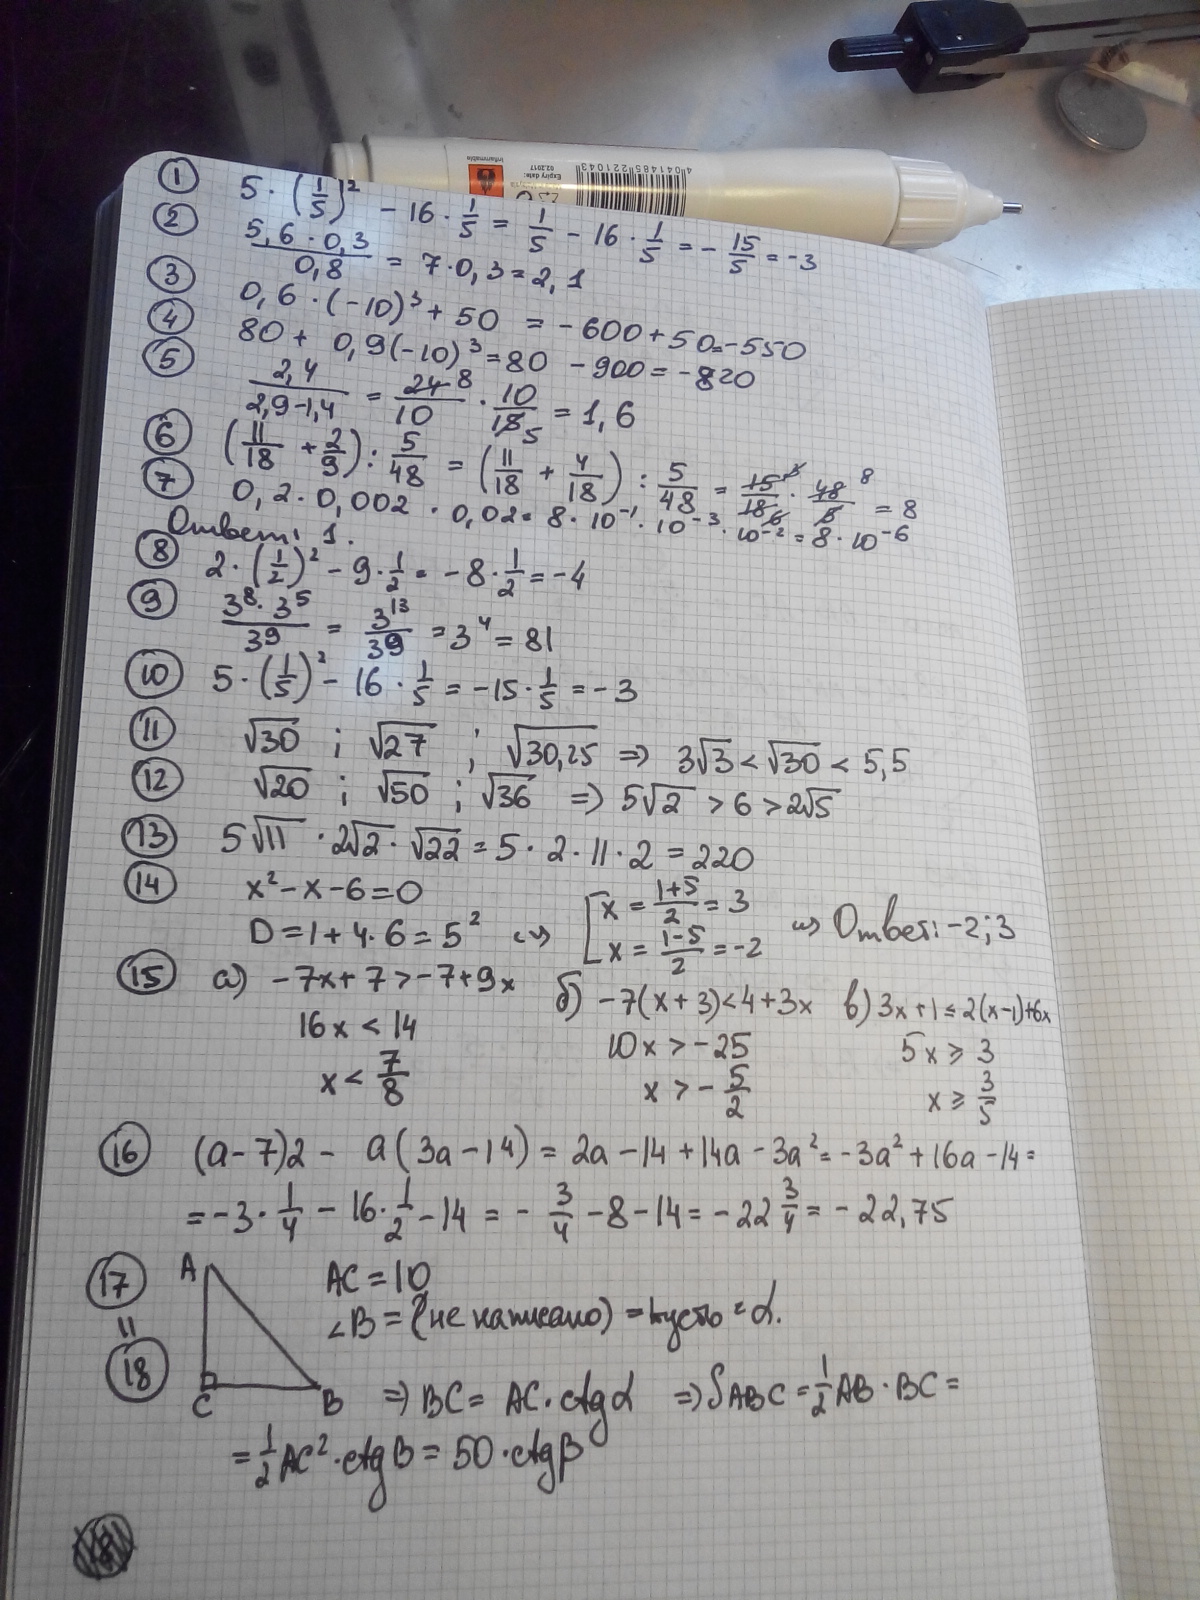 Inflammable
Expiry date:
02.2017
4 041485 221043
① 5 · (1/5)² - 16 · 1/5 = 1/5 - 16 · 1/5 = - 15/5 = -3
② 5,6 · 0,3 / 0,8 = 7 · 0,3 = 2,1
③ 0,6 · (-10)³ + 50 = -600 + 50 = -550
④ 80 + 0,9(-10)³ = 80 - 900 = -820
⑤ 2,4 / 2,9-1,4 = 24 8 / 10 · 10 / 15 5 = 1,6
⑥ (11/18 + 2/9) : 5/48 = (11/18 + 4/18) : 5/48 = 15 3 / 18 6 · 48 8 / 5 = 8
⑦ 0,2 · 0,002 · 0,02 = 8 · 10⁻¹ · 10⁻³ · 10⁻² = 8 · 10⁻⁶
Ответ: 1.
⑧ 2 · (1/2)² - 9 · 1/2 = -8 · 1/2 = -4
⑨ 3⁸ · 3⁵ / 3⁹ = 3¹³ / 3⁹ = 3⁴ = 81
⑩ 5 · (1/5)² - 16 · 1/5 = -15 · 1/5 = -3
⑪ √30 ; √27 ; √30,25 => 3√3 < √30 < 5,5
⑫ √20 ; √50 ; √36 => 5√2 > 6 > 2√5
⑬ 5√11 · 2√2 · √22 = 5 · 2 · 11 · 2 = 220
⑭ x² - x - 6 = 0
D = 1 + 4 · 6 = 5² <=> [ x = 1+5 / 2 = 3
x = 1-5 / 2 = -2 <=> Ответ: -2; 3
⑮ а) -7x + 7 > -7 + 9x б) -7(x + 3) < 4 + 3x в) 3x + 1 ≤ 2(x-1) + 6x
16x < 14 10x > -25 5x ≥ 3
x < 7/8 x > - 5/2 x ≥ 3/5
⑯ (a - 7)2 - a(3a - 14) = 2a - 14 + 14a - 3a² = -3a² + 16a - 14 =
= -3 · 1/4 - 16 · 1/2 - 14 = - 3/4 - 8 - 14 = - 22 3/4 = - 22,75
⑰ A AC = 10
∠B = (не написано) = пусть = α.
=
⑱ C B => BC = AC · ctgα => SABC = 1/2 AB · BC =
= 1/2 AC² · ctgB = 50 · ctgβ